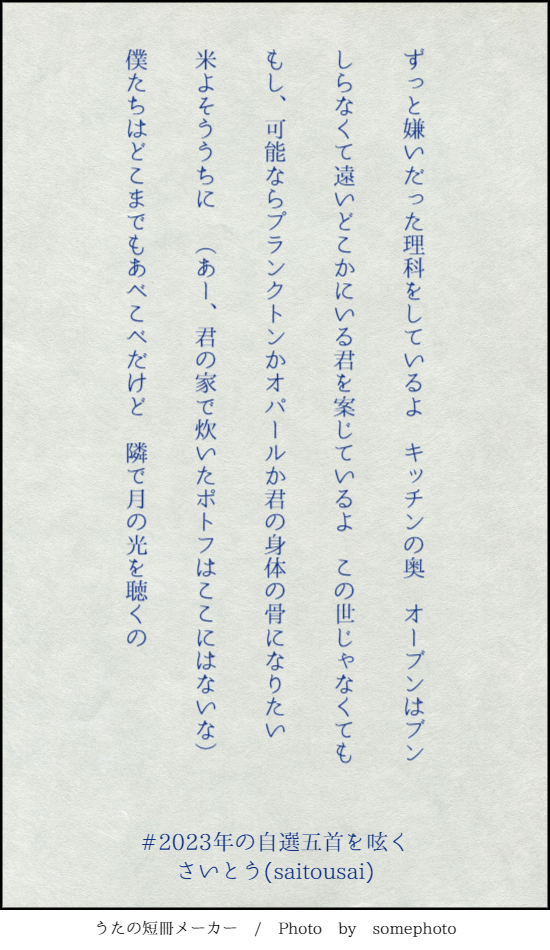 ずっと嫌いだった理科をしているよ　キッチンの奥　オーブンはブン
しらなくて遠いどこかにいる君を案じているよ　この世じゃなくても
もし、可能ならプランクトンかオパールか君の身体の骨になりたい
米よそううちに　（あー、君の家で炊いたポトフはここにはないな）
僕たちはどこまでもあべこべだけど　隣で月の光を聴くの
#2023年の自選五首を呟く
さいとう(saitousai)
うたの短冊メーカー　/　Photo　by　somephoto